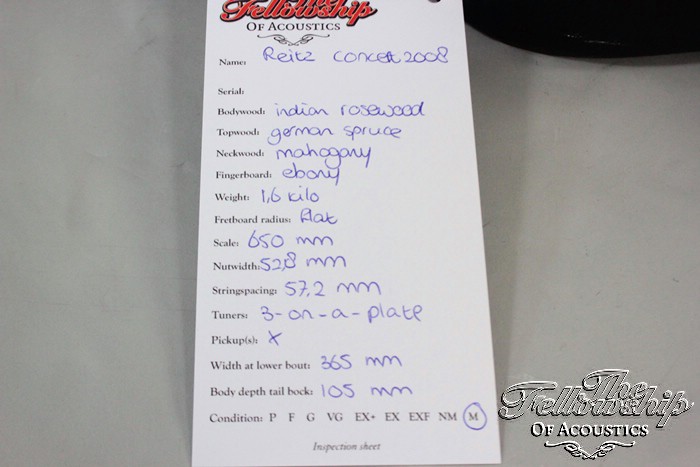 The
Fellowship
OF ACOUSTICS
Name: Reitz Concert 2008
Serial:
Bodywood: indian rosewood
Topwood: german spruce
Neckwood: mahogany
Fingerboard: ebony
Weight: 1,6 kilo
Fretboard radius: flat
Scale: 650 mm
Nutwidth: 52,8 mm
Stringspacing: 57,2 mm
Tuners: 3-on-a-plate
Pickup(s): X
Width at lower bout: 365 mm
Body depth tail bock: 105 mm
Condition: P F G VG EX+ EX EXF NM M
Inspection sheet
The
Fellowship
OF ACOUSTICS